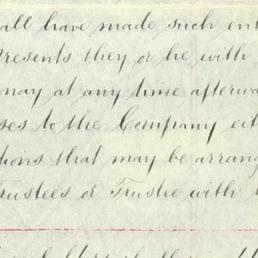 all have made such ent
resents they or he with
may at any time afterwa
ses to the Company eit
tions that may be arrang
rustees or Trustee with